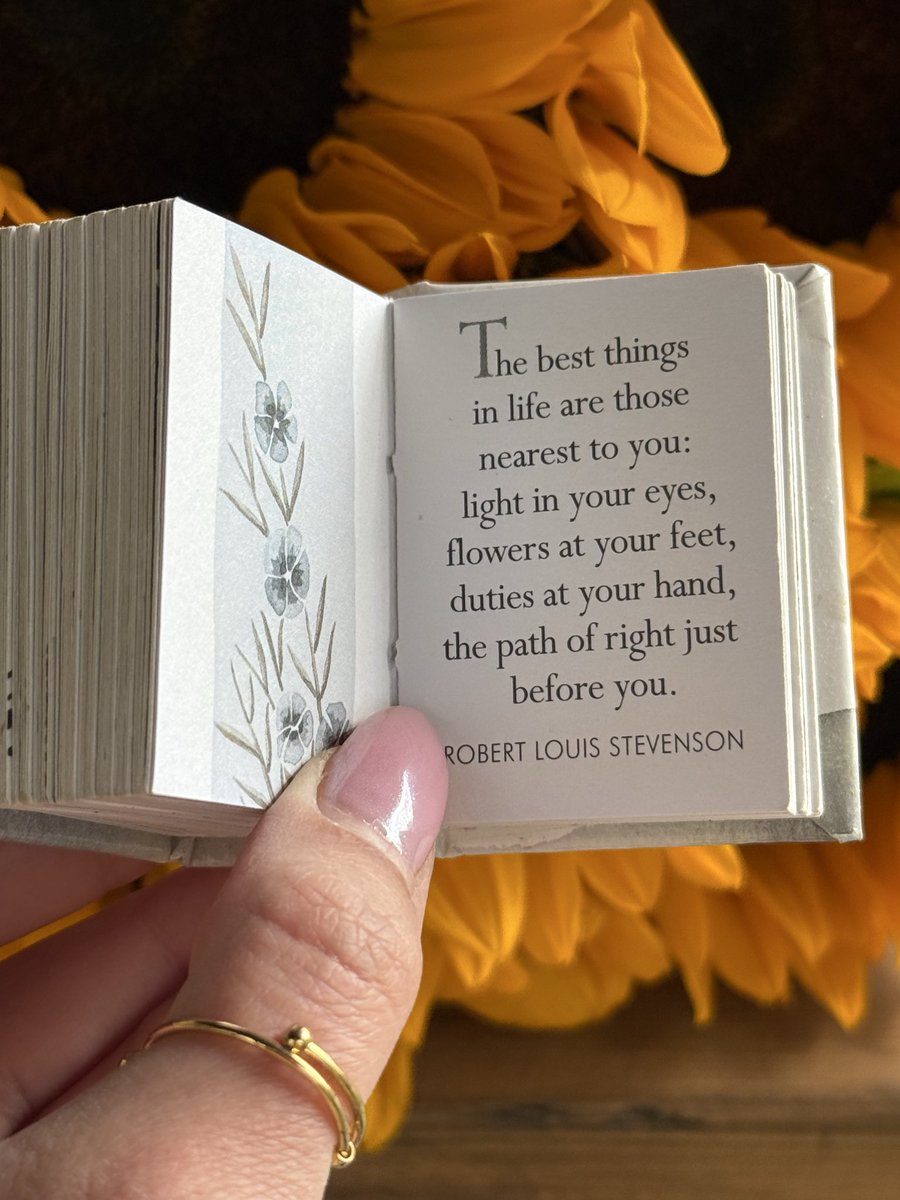 The best things
in life are those
nearest to you:
light in your eyes,
flowers at your feet,
duties at your hand,
the path of right just
before you.
ROBERT LOUIS STEVENSON